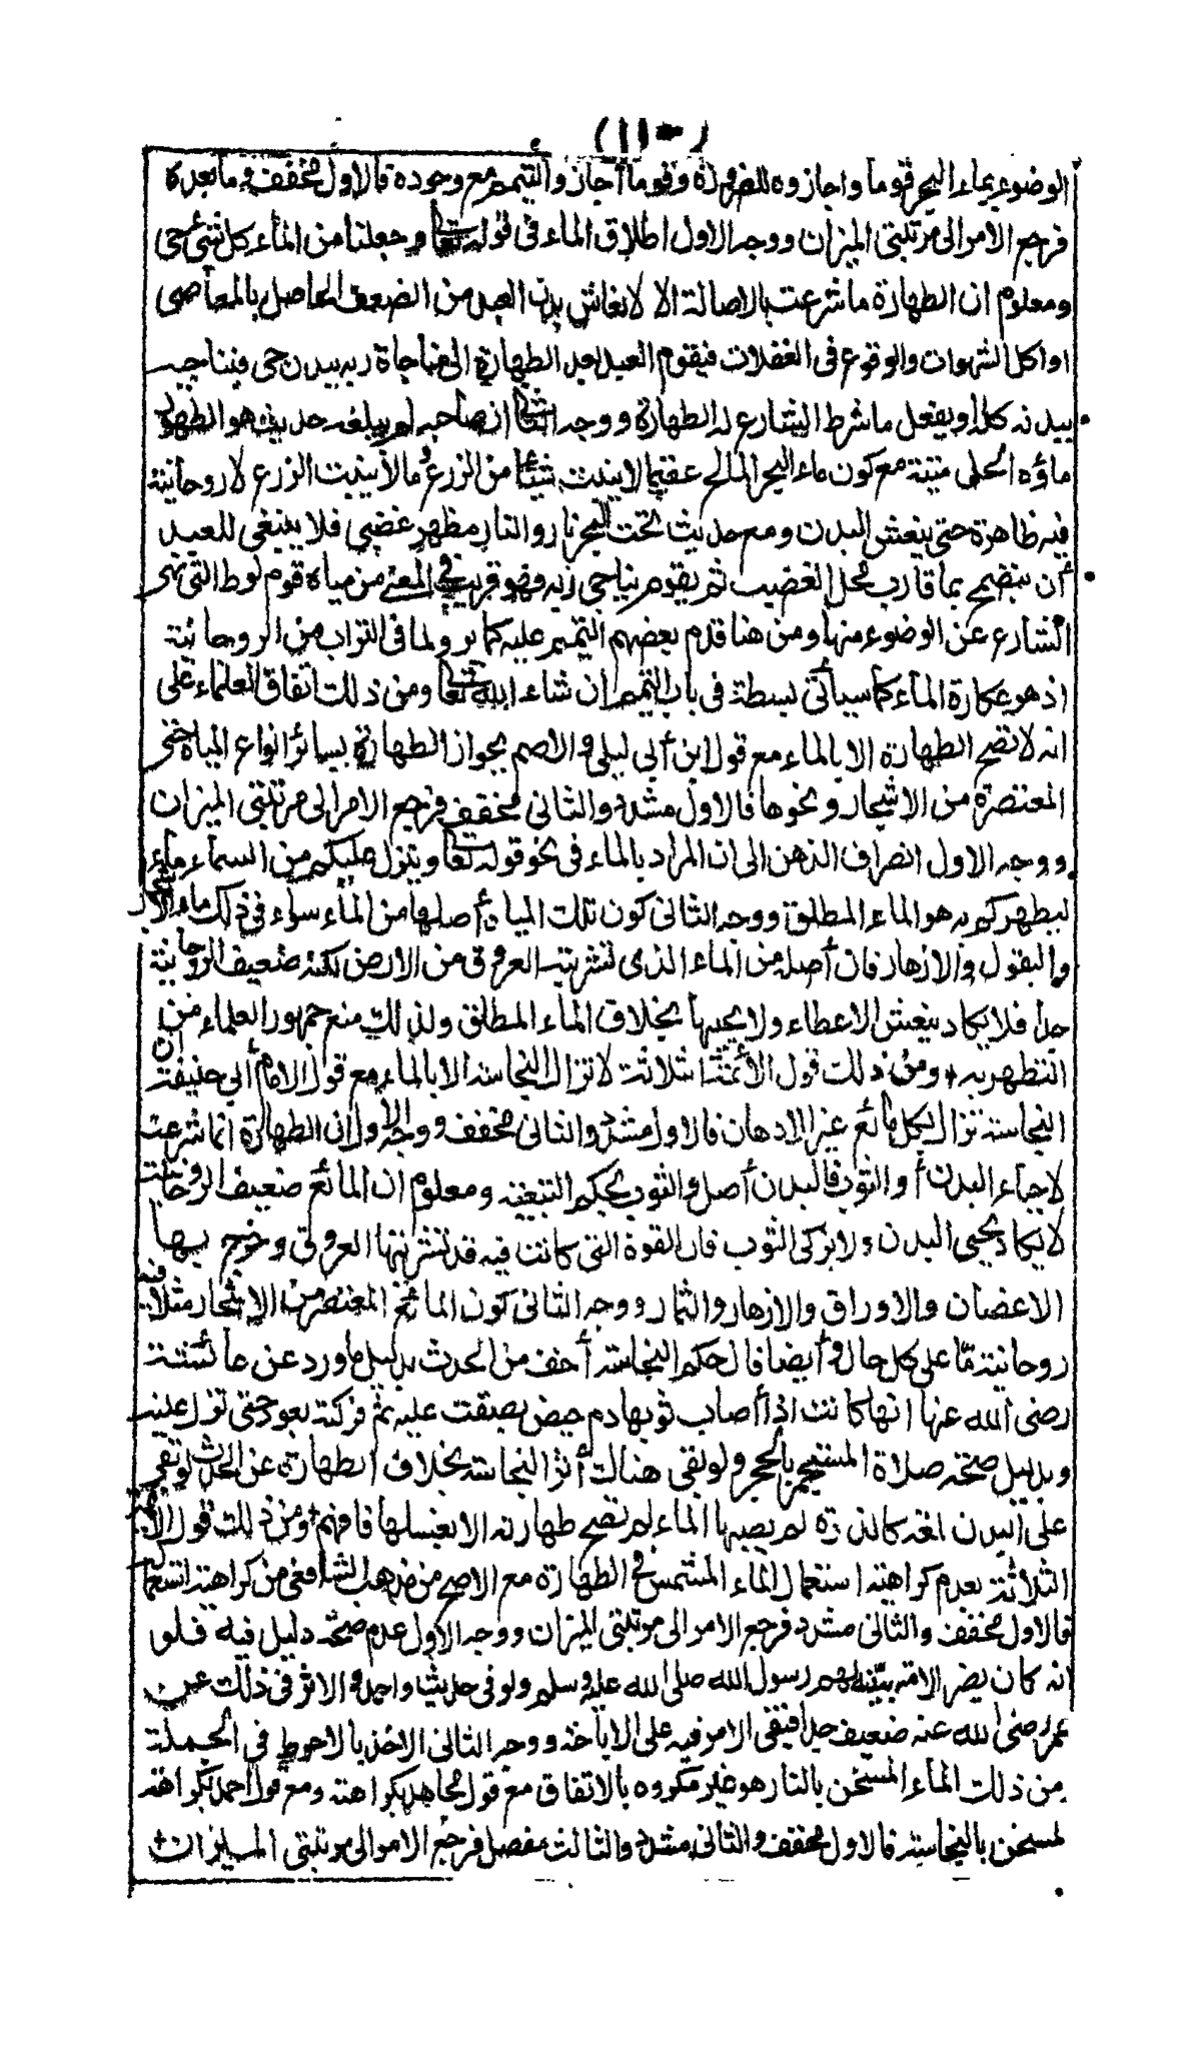 (١١٠)
الوضوء بماء البحر قوما واجازوه للضرورة وقوما أجازوا التيمم مع وجوده فالاول مخفف وما بعده
فرجع الامر الى مرتبتي الميزان ووجه الاول اطلاق الماء في قوله تعالى وجعلنا من الماء كل شئ حي
ومعلوم ان الطهارة ما شرعت بالاصالة الا لانعاش بدن العبد من الضعف الحاصل بالمعاصي
او اكل الشهوات والوقوع في الغفلات فيقوم العبد بعد الطهارة الى مناجاة ربه ببدن حي فيناجيه
ببدنه كله او يفعل ما شرط الشارع له الطهارة ووجه الثاني ان صاحبه لم يبلغه حديث هو الطهور
ماؤه الحل ميتته مع كون ماء البحر المالح عقيما لا ينبت شيئا من الزرع وما لا ينبت الزرع لا روحانية
فيه ظاهرة حتى ينعش البدن ومع حديث تحت البحر نار والنار مظهر غضبي فلا ينبغي للعبد
أن يتضمخ بما قارب محل الغضب ثم يقوم يناجي ربه فهو قريب في المعنى من مياه قوم لوط التي نهى
الشارع عن الوضوء منها ومن هنا قدم بعضهم التيمم عليه كما مر ولما في التراب من الروحانية
اذ هو عكارة الماء كما سيأتي بسطه في باب التيمم ان شاء الله تعالى ومن ذلك اتفاق العلماء على
انه لا تصح الطهارة الا بالماء مع قول ابن أبي ليلى والاصم بجواز الطهارة بسائر انواع المياه حتى
المعتصرة من الاشجار ونحوها فالاول مشدد والثاني مخفف فرجع الامر الى مرتبتي الميزان
ووجه الاول انصراف الذهن الى ان المراد بالماء في نحو قوله تعالى وينزل عليكم من السماء ماء
ليطهركم به هو الماء المطلق ووجه الثاني كون تلك المياه أصلها من الماء سواء في ذلك ماء الاشجار
والبقول والازهار فان أصله من الماء الذي تشربته العروق من الارض لكنه ضعيف الروحانية
جدا فلا يكاد ينعش الاعضاء ولا يحييها بخلاف الماء المطلق ولذلك منع جمهور العلماء من
التطهر به ومن ذلك قول الأئمة الثلاثة لا تزال النجاسة الا بالماء مع قول الامام أبي حنيفة ان
النجاسة تزال بكل مائع غير الادهان فالاول مشدد والثاني مخفف ووجه الاول ان الطهارة انما شرعت
لاحياء البدن أو الثوب فالبدن أصل والثوب بحكم التبعية ومعلوم ان المائع ضعيف الروحانية
لا يكاد يحيي البدن ولا يزكي الثوب فان القوة التي كانت فيه قد تشربتها العروق وخرج بها
الاغصان والاوراق والازهار والثمار ووجه الثاني كون المائع المعتصر من الاشجار مثلا فيه
روحانية ما على كل حال وأيضا فان حكم النجاسة أخف من الحدث بدليل ما ورد عن عائشة
رضى الله عنها انها كانت اذا أصاب ثوبها دم حيض بصقت عليه ثم فركته بعود حتى تزول عينه
وبدليل صحة صلاة المستجمر بالحجر ولو بقى هناك أثر النجاسة بخلاف الطهارة عن الحدث لو بقى
على البدن لمعة كالذرة لم يصبها الماء لم تصح طهارته الا بغسلها فافهم ومن ذلك قول الأئمة
الثلاثة بعدم كراهية استعمال الماء المشمس في الطهارة مع الاصح من مذهب الشافعي من كراهية استعماله
فالاول مخفف والثاني مشدد فرجع الامر الى مرتبتي الميزان ووجه الاول عدم صحة دليل فيه فلو
انه كان يضر الامة بينه لهم رسول الله صلى الله عليه وسلم ولو في حديث واحد والاثر في ذلك عن
عمر رضى الله عنه ضعيف جدا فبقى الامر فيه على الاباحة ووجه الثاني الاخذ بالاحوط في الجملة
من ذلك الماء المسخن بالنار هو غير مكروه بالاتفاق مع قول مجاهد بكراهته ومع قول احمد بكراهة
لمسخن بالنجاسة فالاول مخفف والثاني مشدد والثالث مفصل فرجع الامر الى مرتبتي الميزان